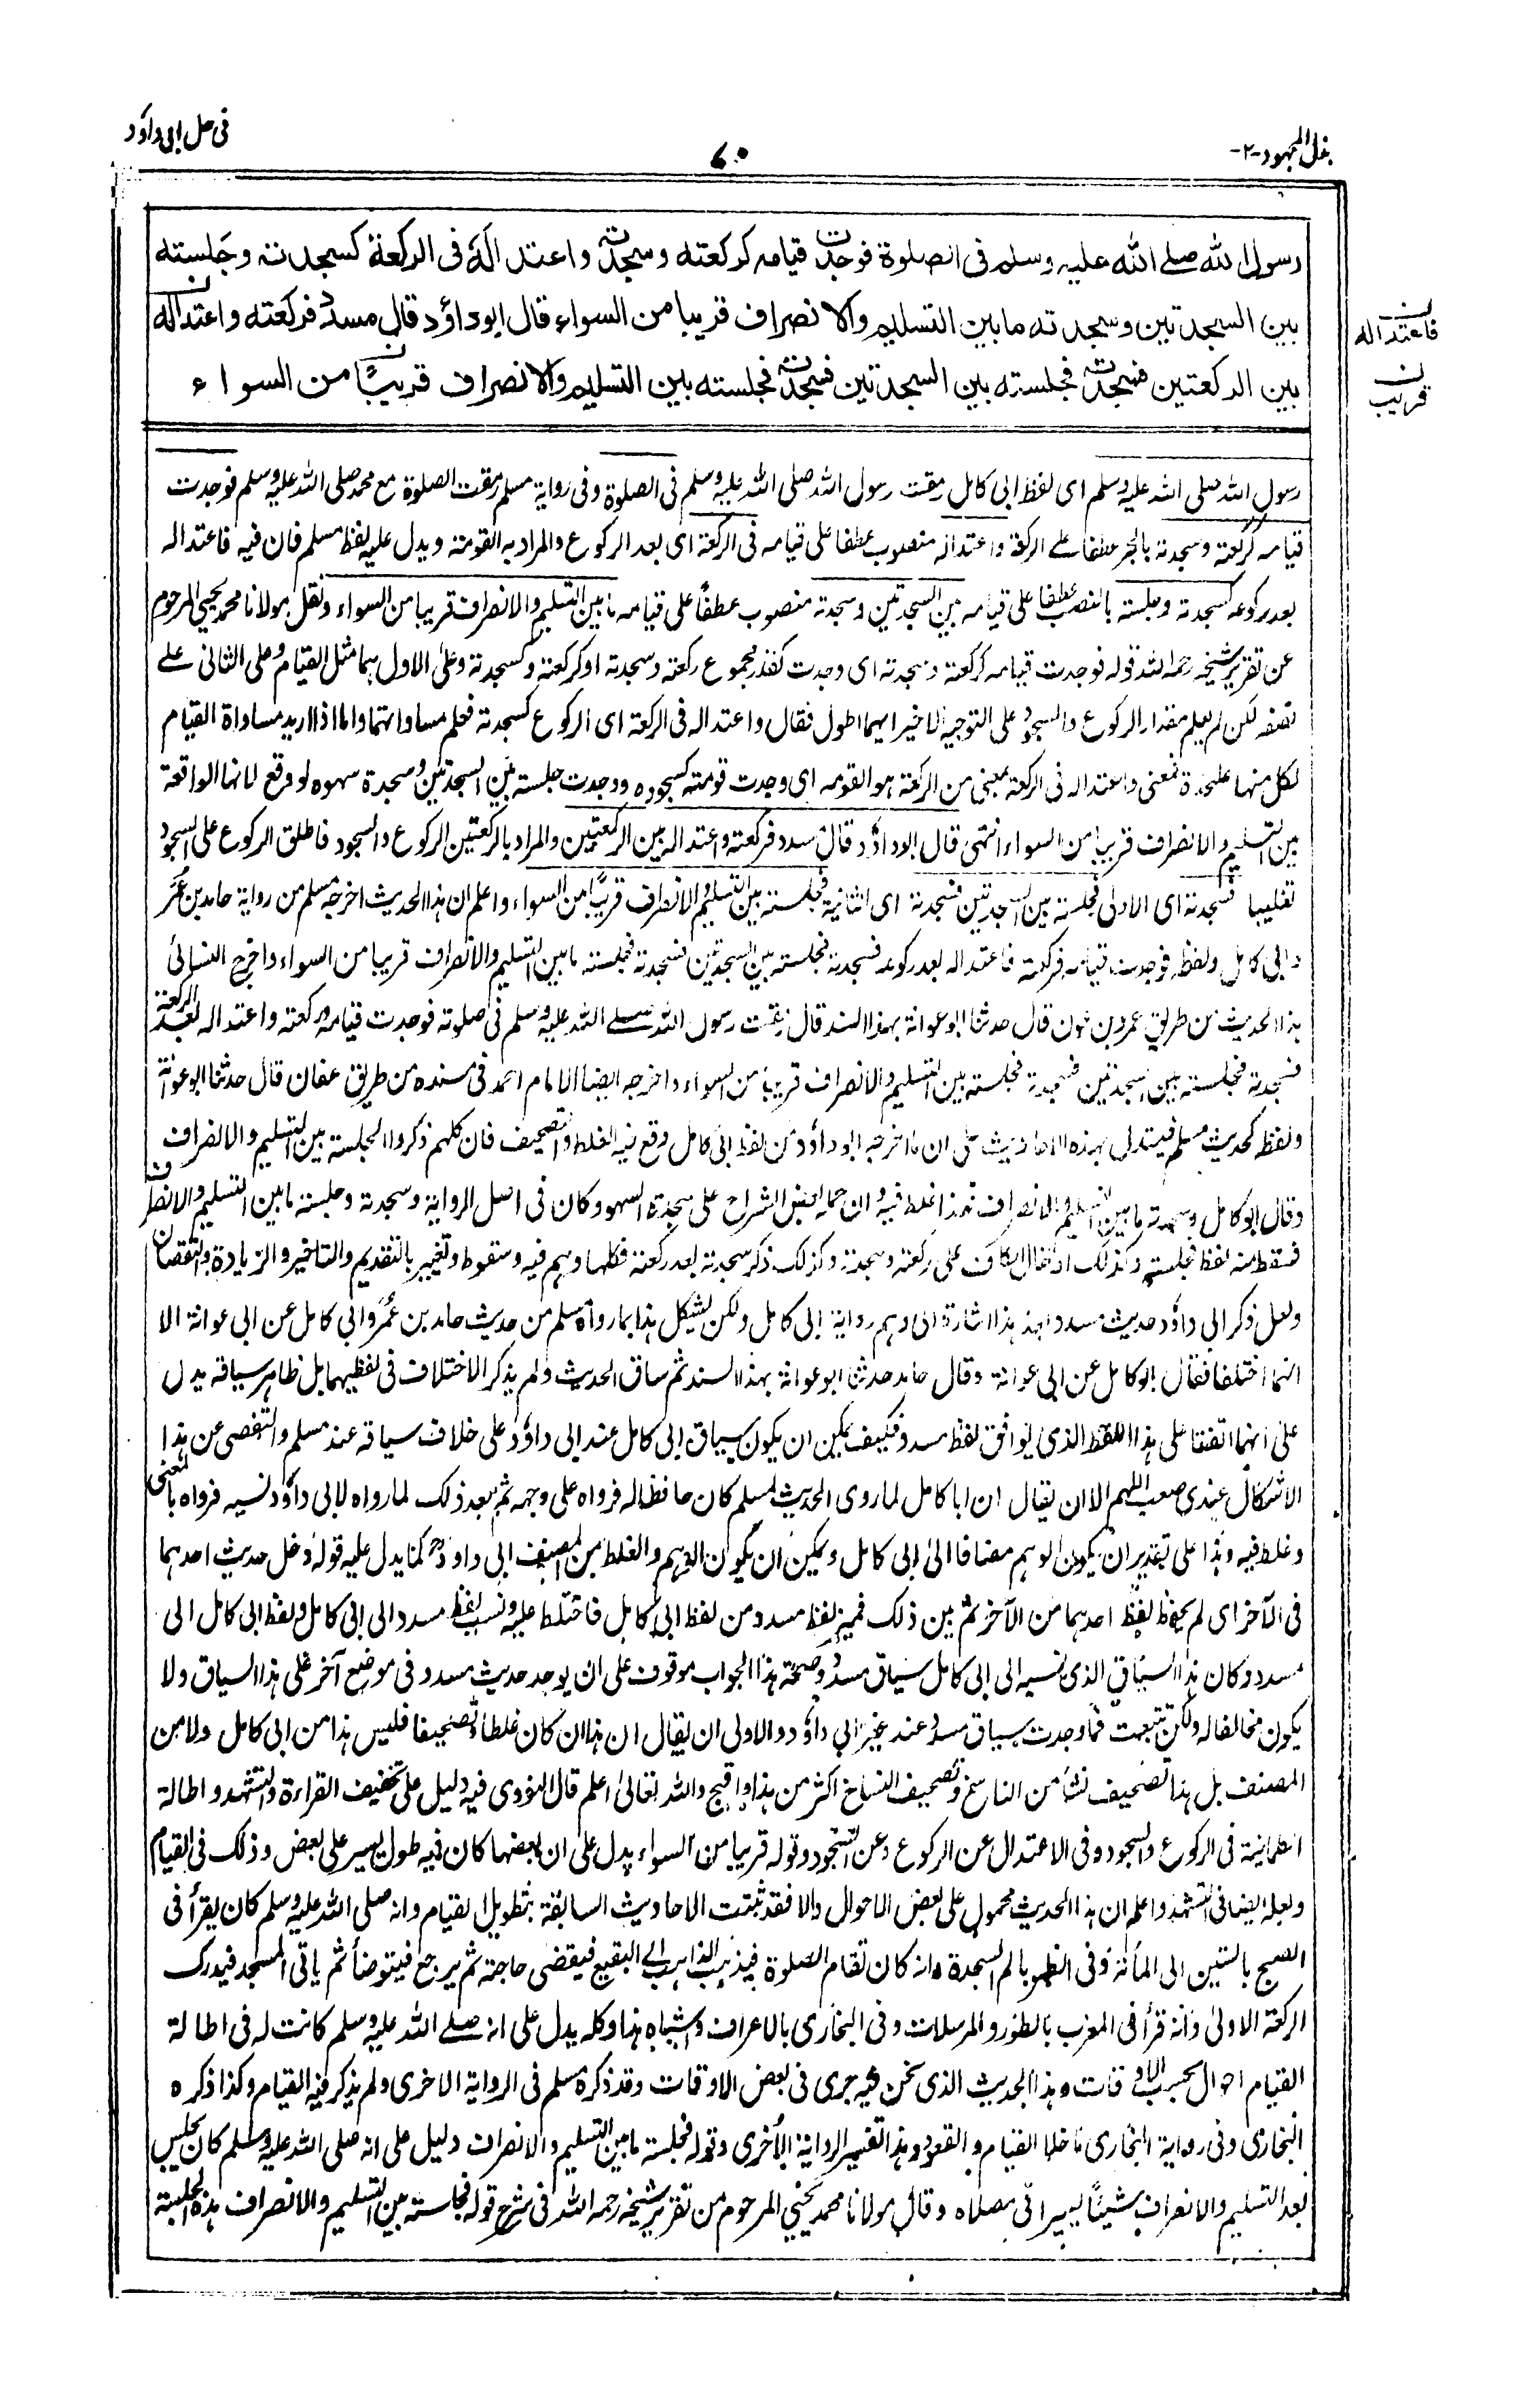 بذل المجهود -٢-
٧٠
فى حل ابى داؤد
رسول الله صلے الله عليه وسلم فى الصلوة فوجدت قيامه كركعته وسجدته واعتداله فى الركعة كسجدته وجلسته
بين السجدتين وسجدته مابين التسليم والانصراف قريبا من السواء قال ابوداؤد قال مسدد فركعته واعتداله
بين الركعتين فسجدته فجلسته بين السجدتين فسجدته فجلسته بين التسليم والانصراف قريبًا من السواء
ن فاعتداله
ن قريب
رسول الله صلى الله عليه وسلم اى لفظ ابى كامل رمقت رسول الله صلى الله عليه وسلم فى الصلوة وفى رواية مسلم رمقت الصلوة مع محمد صلى الله عليه وسلم فوجدت
قيامه كركعته وسجدته بالجر عطفا على الركعة واعتداله منصوب عطفا على قيامه فى الركعة اى بعد الركوع والمراد به القومة ويدل عليه لفظ مسلم فان فيه فاعتداله
بعد ركوعه كسجدته وجلسته بالنصب عطفا على قيامه بين السجدتين وسجدته منصوب عطفًا على قيامه مابين التسليم والانصراف قريبا من السواء ونقل مولانا محمد يحيى المرحوم
عن تقرير شيخه رحمه الله قوله فوجدت قيامه كركعته وسجدته اى وجدت كقدر مجموع ركعته وسجدته او كركعته وكسجدته وعلى الاول هما مثل القيام وعلى الثانى على
نصفه لكن لم يعلم مقدار الركوع والسجود على التوجيه الاخير ايهما اطول فقال واعتداله فى الركعة اى الركوع كسجدته فعلم مساواتهما واما اذا اريد مساواة القيام
لكل منها علىحدة فمعنى واعتداله فى الركعة بمعنى من الركعة هو القومه اى وجدت قومته كسجوده ووجدت جلسته بين السجدتين وسجدة سهوه لو وقع لانها الواقعة
بين التسليم والانصراف قريبا من السواء انتهى قال ابوداؤد قال مسدد فركعته واعتداله بين الركعتين والمراد بالركعتين الركوع والسجود فاطلق الركوع على السجود
تغليبا فسجدته اى الاولى فجلسته بين السجدتين فسجدته اى الثانية فجلسته بين التسليم والانصراف قريبًا من السواء واعلم ان هذا الحديث اخرجه مسلم من رواية حامد بن عمر
وابى كامل ولفظه فوجدت قيامه فركعته فاعتداله بعد ركوعه فسجدته فجلسته بين السجدتين فسجدته فجلسته مابين التسليم والانصراف قريبا من السواء واخرج النسائى
هذا الحديث من طريق عمرو بن عون قال حدثنا ابوعوانة بهذا السند قال رمقت رسول الله صلے الله عليه وسلم فى صلوته فوجدت قيامه وركعته واعتداله بعد الركعة
فسجدته فجلسته بين السجدتين فسجدته فجلسته بين التسليم والانصراف قريبا من السواء واخرجه ايضا الامام احمد فى مسنده من طريق عفان قال حدثنا ابوعوانة
ولفظه كحديث مسلم فيستدل بهذه الاحاديث على ان ما اخرجه ابوداؤد من لفظ ابى كامل وقع فيه الغلط والتصحيف فان كلهم ذكروا الجلسة بين التسليم والانصراف
وقال ابوكامل وسجدته مابين التسليم والانصراف فهذا غلط فيه وان حمله بعض الشراح على سجدة السهو وكان فى اصل الرواية وسجدته وجلسته مابين التسليم والانصراف
فسقط منه لفظ فجلسته وكذلك ادخال الكاف على ركعته وسجدته وكذلك ذكر سجدته بعد ركعته فكلها وهم فيه وسقوط وتغيير بالتقديم والتاخير والزيادة والنقصان
ولعل ذكر ابى داؤد حديث مسدد بعد هذا اشارة الى وهم رواية ابى كامل ولكن يشكل هذا بما رواه مسلم من حديث حامد بن عمر وابى كامل عن ابى عوانة الا
انهما اختلفا فقال ابوكامل عن ابى عوانة وقال حامد حدثنا ابوعوانة بهذا السند ثم ساق الحديث ولم يذكر الاختلاف فى لفظيهما بل ظاهر سياقه يدل
على انهما اتفقا على هذا اللفظ الذى يوافق لفظ مسدد فكيف يمكن ان يكون سياق ابى كامل عند ابى داؤد على خلاف سياقه عند مسلم والتفصى عن هذا
الاشكال عندى صعب اللهم الا ان يقال ان ابا كامل لما روى الحديث لمسلم كان حافظا له فرواه على وجهه ثم بعد ذلك لما رواه لابى داؤد نسيه فرواه بالمعنى
وغلط فيه وهذا على تقدير ان يكون الوهم مضافا الى ابى كامل ويمكن ان يكون الوهم والغلط من المصنف ابى داود كما يدل عليه قوله دخل حديث احدهما
فى الآخر اى لم يحفظ لفظ احدهما من الآخر ثم بين ذلك فميز لفظ مسدد من لفظ ابى كامل فاختلط عليه ونسب لفظ مسدد الى ابى كامل ولفظ ابى كامل الى
مسدد وكان هذا السياق الذى نسبه الى ابى كامل سياق مسدد وصحة هذا الجواب موقوف على ان يوجد حديث مسدد فى موضع آخر على هذا السياق ولا
يكون مخالفا له ولكن تتبعت فما وجدت سياق مسدد عند غير ابى داؤد والاولى ان يقال ان هذا ان كان غلطا وتصحيفا فليس هذا من ابى كامل ولا من
المصنف بل هذا تصحيف نشأ من الناسخ وتصحيف النساخ اكثر من هذا واقبح والله تعالى اعلم قال النووى فيه دليل على تخفيف القراءة والتشهد واطالة
الطمانينة فى الركوع والسجود وفى الاعتدال عن الركوع وعن السجود وقوله قريبا من السواء يدل على ان بعضها كان فيه طول يسير على بعض وذلك فى القيام
ولعله ايضا فى التشهد واعلم ان هذا الحديث محمول على بعض الاحوال والا فقد ثبتت الاحاديث السابقة بتطويل القيام وانه صلى الله عليه وسلم كان يقرأ فى
الصبح بالستين الى المأئة وفى الظهر بالم السجدة وانه كان تقام الصلوة فيذهب الذاهب الى البقيع فيقضى حاجته ثم يرجع فيتوضأ ثم ياتى المسجد فيدرك
الركعة الاولى وانه قرأ فى المغرب بالطور والمرسلات وفى البخارى بالاعراف واشباه هذا وكله يدل على انه صلے الله عليه وسلم كانت له فى اطالة
القيام احوال بحسب الاوقات وهذا الحديث الذى نحن فيه جرى فى بعض الاوقات وقد ذكره مسلم فى الرواية الاخرى ولم يذكر فيه القيام وكذا ذكره
البخارى وفى رواية البخارى ما خلا القيام والقعود وهذا تفسير الرواية الأخرى وقوله فجلسته مابين التسليم والانصراف دليل على انه صلى الله عليه وسلم كان يجلس
بعد التسليم والانصراف شيئًا يسيرا فى مصلاه وقال مولانا محمد يحيى المرحوم من تقرير شيخه رحمه الله فى شرح قوله فجلسته بين التسليم والانصراف هذه الجلسة